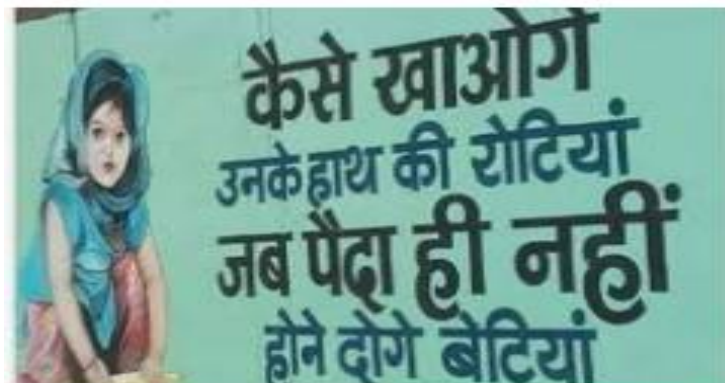 कैसे खाओगे
उनके हाथ की रोटियां
जब पैदा ही नहीं
होने दोगे बेटियां